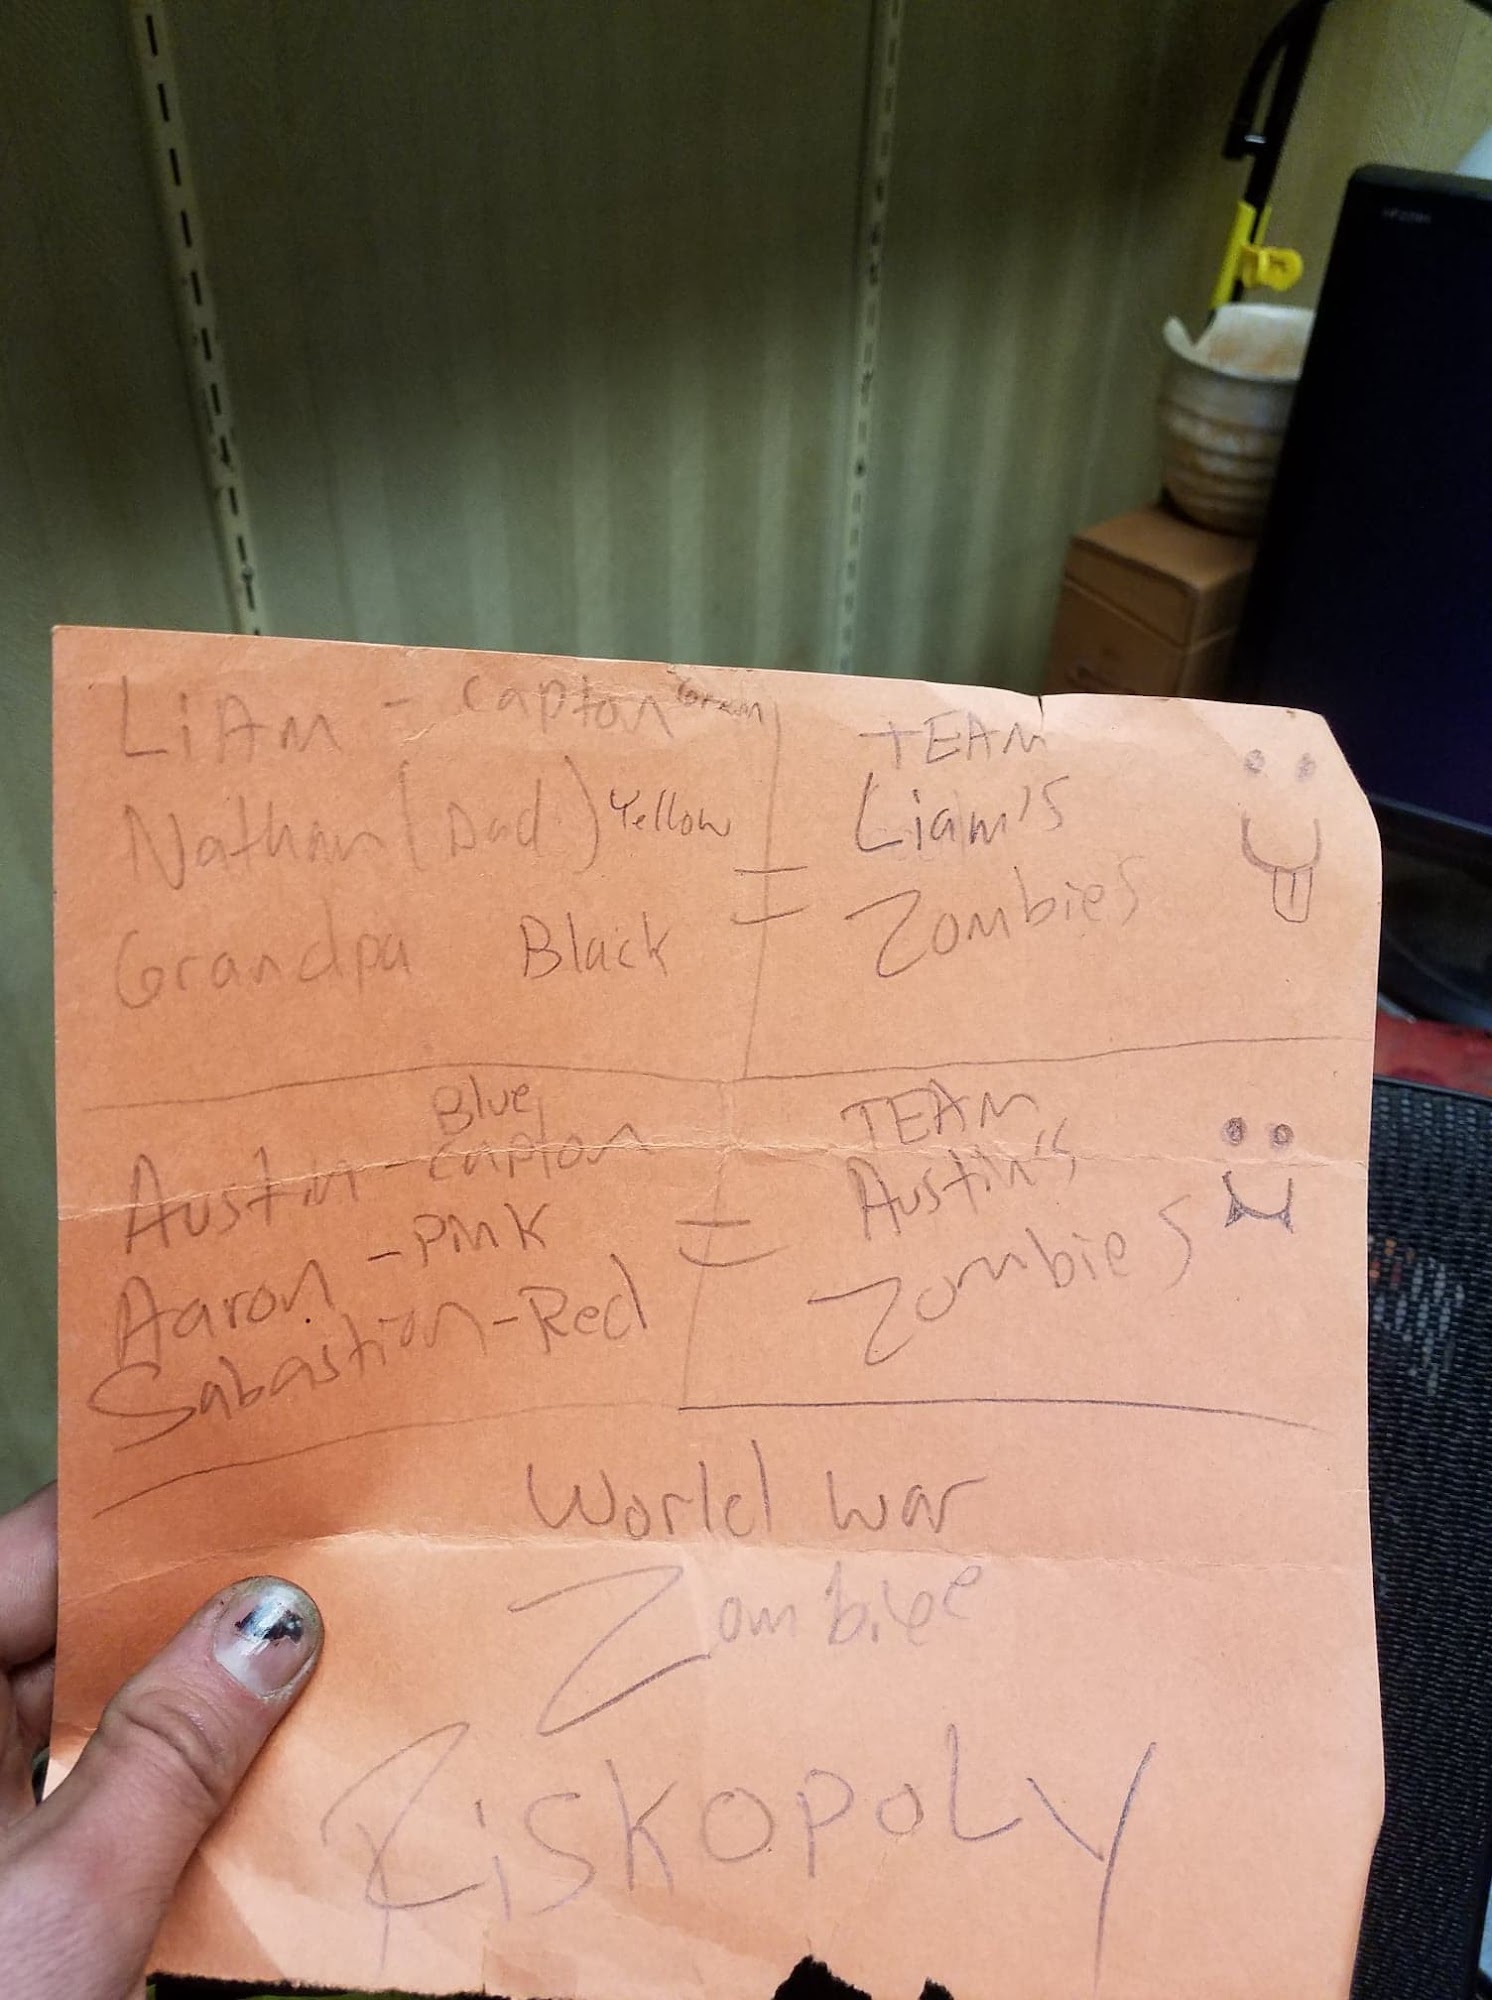 LiAm - Capton Green
Nathan (Dad) Yellow
Grandpa Black
=
TEAM
Liam's
Zombies
Blue
Austin - Capton
Aaron - Pink
Sabastion - Red
=
TEAM
Austin's
Zombies
World War
Zombie
RiSKOPOLY